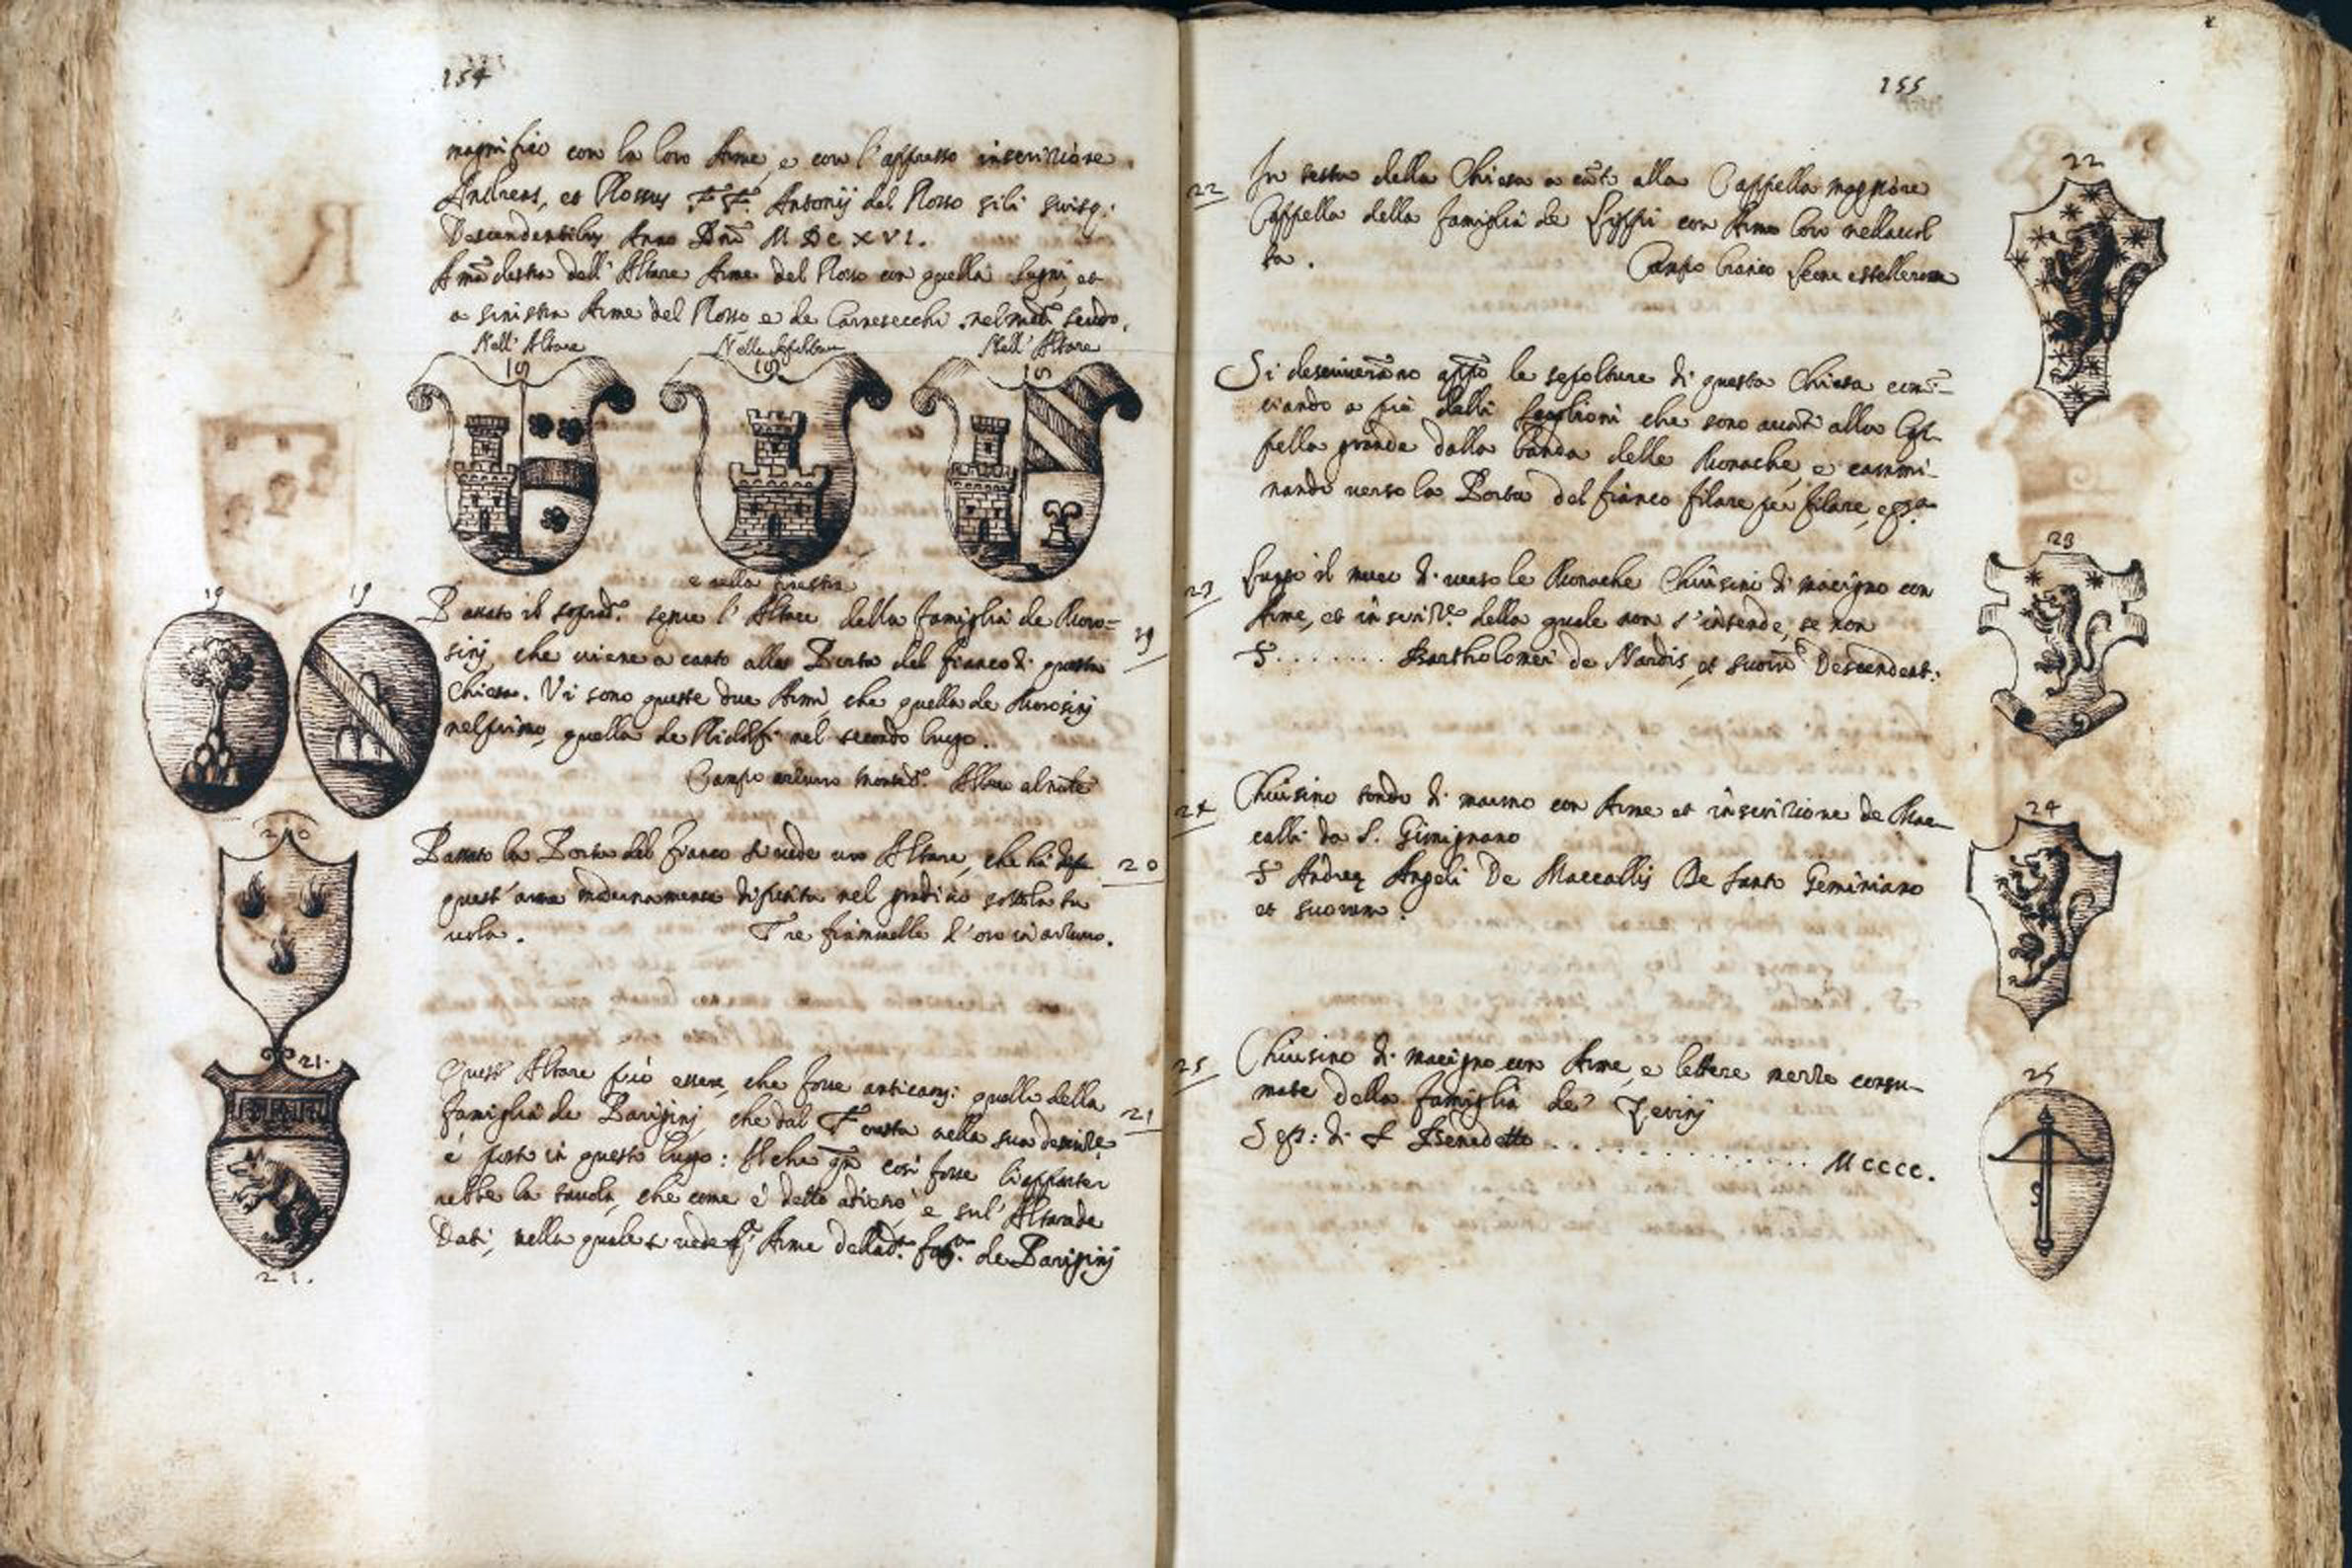 154
magnifico con la loro Arme, e con l'appresso inscrizione.
Andreas, et Rossus FF. Antonij del Rosso sibi suisq:
Descendentibus Anno Dni MDCXVI.
A mā destra dell'Altare Arme del Rosso con quella
a sinistra Arme del Rosso e de Carnesecchi nel med.º scudo.
Nell'Altare Nella sepoltura Nell'Altare
18 18 18
e nella finestra
19 19
Passato il soprad.º segue l'Altare della famiglia de Moro=
sinj che viene a canto alla Porta del fianco di questa
19
Chiesa. Vi sono queste due Armi, che quella de Morosinj
nel primo, quella de Ridolfi nel secondo luogo.
Campo azzurro
20
Passato la Porta del fianco si vede un Altare, che hà
20
quest'arme modernamente dipinta nel gradino sotto la ta
vola. Tre fiammelle d'oro in azzurro.
21.
Quest'Altare può essere, che fosse anticam: quello della
famiglia de Parigini, che dal Foresta nella sua descriz.e
21
è posto in questo luogo: Il che qn così fosse li apparter
rebbe la tavola, che come è detto adietro è sul'Altare de
Dati, nella quale si vede Arme della d.ª fam.ª de Parigini
21.
155
22
22
In testa della Chiesa a cāto alla Cappella maggiore
Cappella della famiglia de Lippi con Arme loro nella vol
ta. Campo bianco Leone e stelle rosse
Si descriverāno app.º le sepolture di questa Chiesa comī=
ciando a piè dalli scaglioni che sono avāti alla Cap-
pella grande dalla banda delle Monache, e cammi-
nando verso la Porta del fianco filare per filare, e p.ª
23
23
Lungo il muro di verso le Monache Chiusini di macigno con
Arme, et inscriz.e della quale non s'intende, se non
S. . . . . . . . Bartholomei de Nardis, et suorum Descendent:
24
24
Chiusino tondo di marmo con Arme et inscrizione de Mac-
calli da S. Gimignano
S Andreę Angeli De Maccallis De Santo Geminiano
et suorum.
25
25
Chiusino di macigno con Arme, e lettere mezze consu-
mate della famiglia de' Zevinj
Sep: di S Benedetto . . . . . . . . . . . . . . MCCCC.